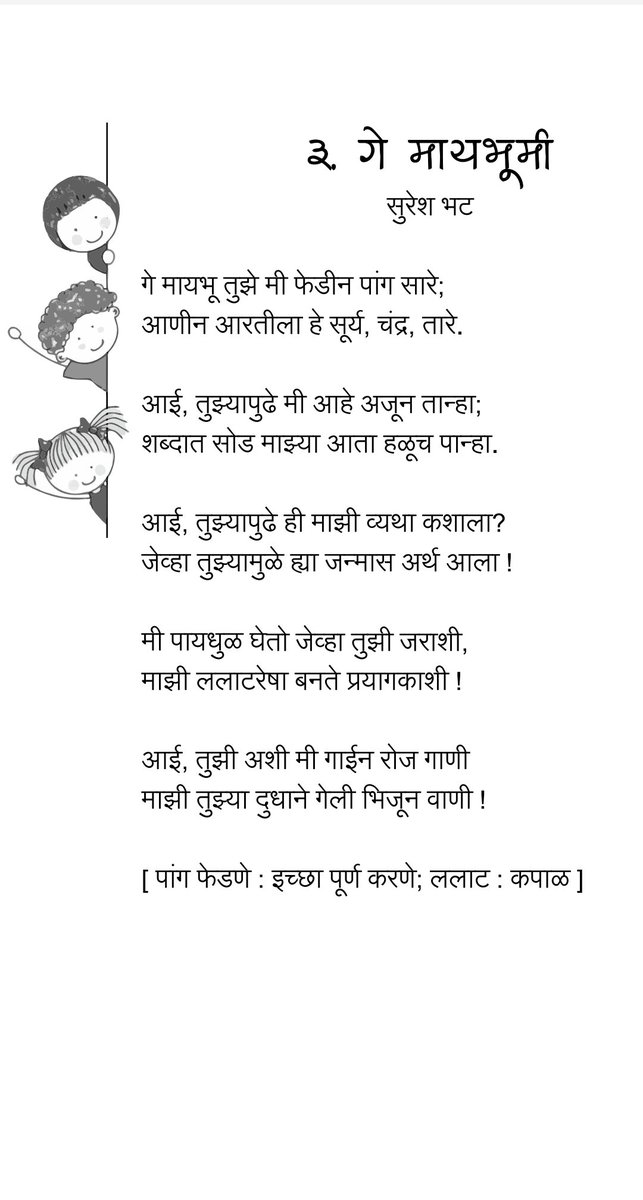 ३. गे मायभूमी
सुरेश भट
गे मायभू तुझे मी फेडीन पांग सारे;
आणीन आरतीला हे सूर्य, चंद्र, तारे.
आई, तुझ्यापुढे मी आहे अजून तान्हा;
शब्दात सोड माझ्या आता हळूच पान्हा.
आई, तुझ्यापुढे ही माझी व्यथा कशाला?
जेव्हा तुझ्यामुळे ह्या जन्मास अर्थ आला !
मी पायधुळ घेतो जेव्हा तुझी जराशी,
माझी ललाटरेषा बनते प्रयागकाशी !
आई, तुझी अशी मी गाईन रोज गाणी
माझी तुझ्या दुधाने गेली भिजून वाणी !
[ पांग फेडणे : इच्छा पूर्ण करणे; ललाट : कपाळ ]